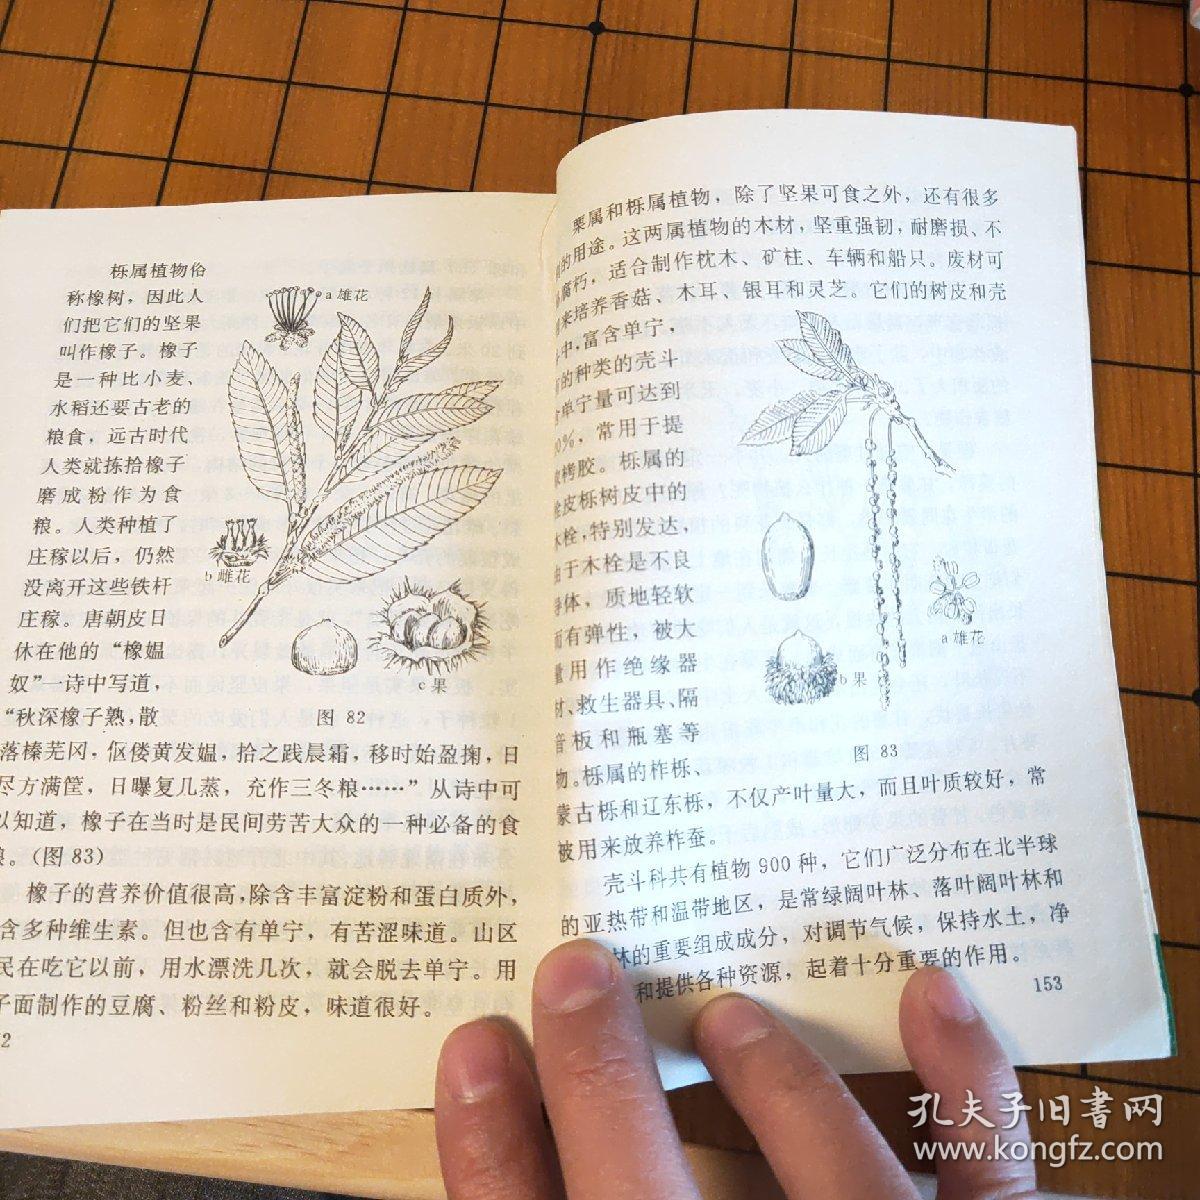 栎属植物俗
称橡树，因此人
们把它们的坚果
叫作橡子。橡子
是一种比小麦、
水稻还要古老的
粮食，远古时代
人类就拣拾橡子
磨成粉作为食
粮。人类种植了
庄稼以后，仍然
没离开这些铁杆
庄稼。唐朝皮日
休在他的“橡媪
奴”一诗中写道，
“秋深橡子熟，散
a 雄花
b 雌花
c 果
图 82
落榛芜冈，伛偻黄发媪，拾之践晨霜，移时始盈掬，日
尽方满筐，日曝复几蒸，充作三冬粮……”从诗中可
以知道，橡子在当时是民间劳苦大众的一种必备的食
粮。（图 83）
橡子的营养价值很高，除含丰富淀粉和蛋白质外，
含多种维生素。但也含有单宁，有苦涩味道。山区
民在吃它以前，用水漂洗几次，就会脱去单宁。用
子面制作的豆腐、粉丝和粉皮，味道很好。
2
栗属和栎属植物，除了坚果可食之外，还有很多
的用途。这两属植物的木材，坚重强韧，耐磨损、不
腐朽，适合制作枕木、矿柱、车辆和船只。废材可
来培养香菇、木耳、银耳和灵芝。它们的树皮和壳
中，富含单宁，
的种类的壳斗
单宁量可达到
0%，常用于提
栲胶。栎属的
皮栎树皮中的
栓，特别发达，
由于木栓是不良
导体，质地轻软
而有弹性，被大
量用作绝缘器
材、救生器具、隔
音板和瓶塞等
物。栎属的柞栎、
a 雄花
b 果
图 83
蒙古栎和辽东栎，不仅产叶量大，而且叶质较好，常
被用来放养柞蚕。
壳斗科共有植物 900 种，它们广泛分布在北半球
的亚热带和温带地区，是常绿阔叶林、落叶阔叶林和
林的重要组成成分，对调节气候，保持水土，净
和提供各种资源，起着十分重要的作用。
153
孔夫子旧书网
www.kongfz.com